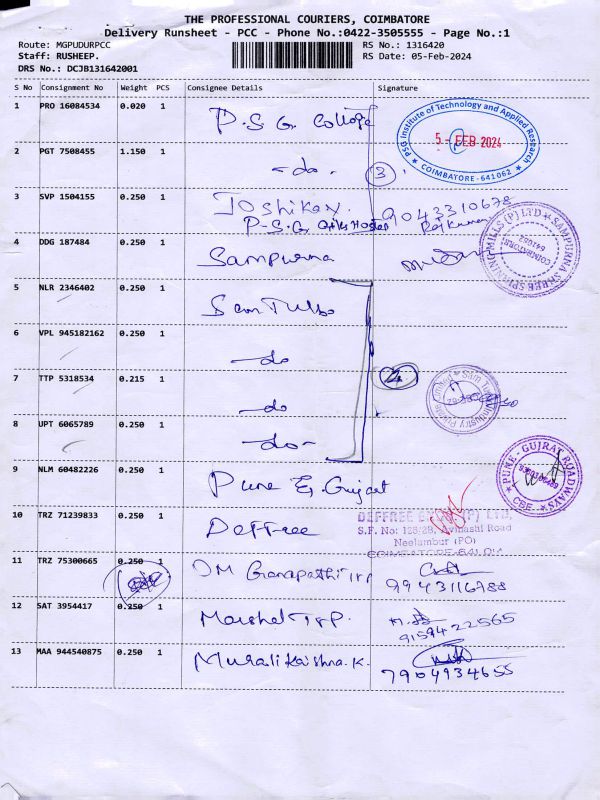 THE PROFESSIONAL COURIERS, COIMBATORE
Delivery Runsheet - PCC - Phone No.:0422-3505555 - Page No.:1
Route: MGPUDURPCC
RS No.: 1316420
Staff: RUSHEEP.
RS Date: 05-Feb-2024
DRS No.: DCJB131642001
S No Consignment No Weight PCS Consignee Details Signature
1 PRO 16084534 0.020 1 P.S.G. College
PSG Institute of Technology and Applied Research
5 - FEB 2024
* COIMBATORE-641062 *
2 PGT 7508455 1.150 1 -do- 3
3 SVP 1504155 0.250 1 9043310678
P.S.G. Rajkumar
4 DDG 187484 0.250 1 Sampurna
SAMPURNA SHREE SPINNING MILLS (P) LTD
COIMBATORE
641062
5 NLR 2346402 0.250 1
6 VPL 945182162 0.250 1 -do
7 TTP 5318534 0.215 1 -do
Private Limited
8 UPT 6065789 0.250 1 -do-
9 NLM 60482226 0.250 1 Pune & Gujarat
PUNE - GUJRAT ROADWAYS
CBE.
10 TRZ 71239833 0.250 1 Deffree
DEFFREE (P) LTD
S.F. No: 128/2B, Avinashi Road
Neelambur (PO)
COIMBATORE-641
11 TRZ 75300665 0.250 1 OM Ganapathi Trp
9943116788
12 SAT 3954417 0.250 1 Marshal Trp.
9159422565
13 MAA 944540875 0.250 1 Murali Krishna.K.
7904934655